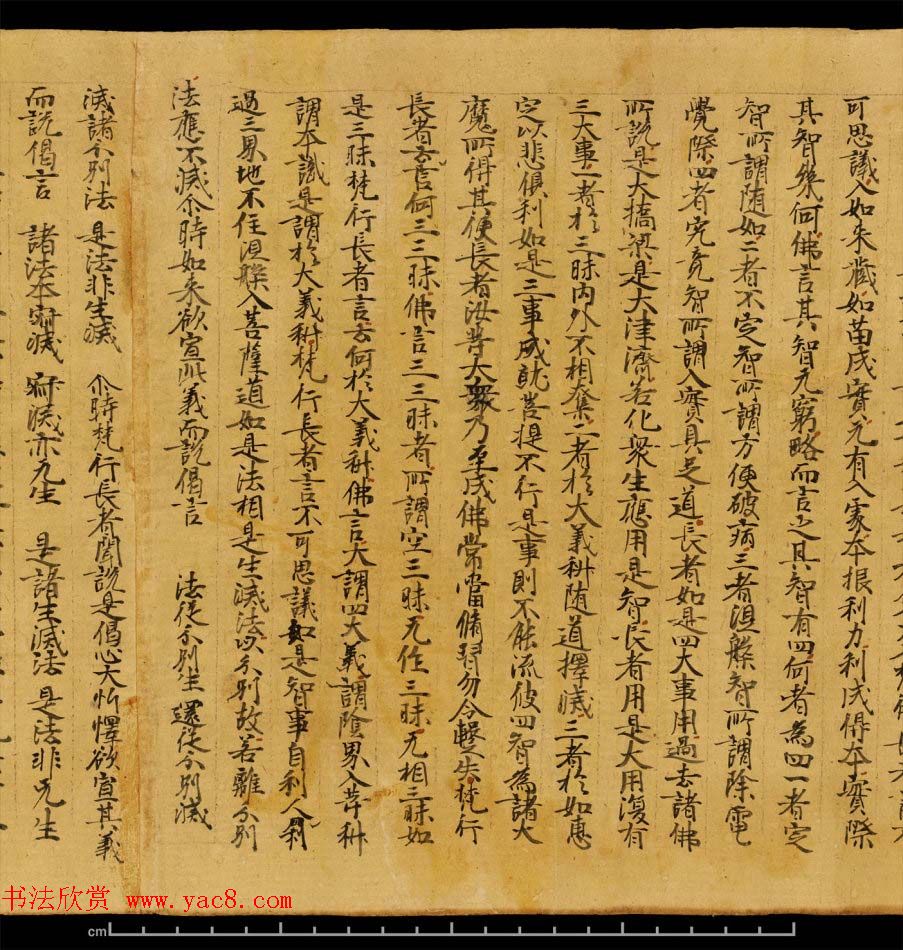 可思議入如来藏如苗成實无有入處本根利力利成得本實際
其智幾何佛言其智无窮略而言之其智有四何者為四一者定
智所謂随如二者不定智所謂方便破病三者涅槃智所謂除電
覺際四者究竟智所謂入實具足道長者如是四大事用過去諸佛
所說是大橋梁是大津濟若化衆生應用是智長者用是大用復有
三大事一者於三昧内外不相奪二者於大義科随道擇滅三者於如惠
定以悲俱利如是三事成就菩提不行是事則不能流彼四智為諸大
魔所得其便長者汝等大衆乃至成佛常當脩習勿令蹔失梵行
長者言云何三三昧佛言三三昧者所謂空三昧无住三昧无相三昧如
是三昧梵行長者言云何於大義科佛言大謂四大義謂陰界入等科
謂本識是謂於大義科梵行長者言不可思議如是智事自利人利
過三界地不住涅槃入菩薩道如是法相是生滅法以分別故若離分別
法應不滅尒時如来欲宣此義而說偈言 法從分別生 還從分別滅
滅諸分別法 是法非生滅 尒時梵行長者聞說是偈心大忻懌欲宣其義
而說偈言 諸法本寂滅 寂滅亦无生 是諸生滅法 是法非无生
书法欣赏 www.yac8.com
cm